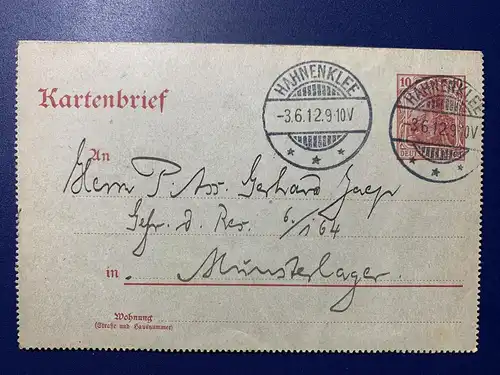 HAHNENKLEE
-3.6.12.9-10V
10
HAHNENKLEE
3.6.12.9-10V
Kartenbrief
An
Herrn P. Ass. Gerhard
Gefr. d. Res. 6./I 64
in Munsterlager.
Wohnung
(Straße und Hausnummer)